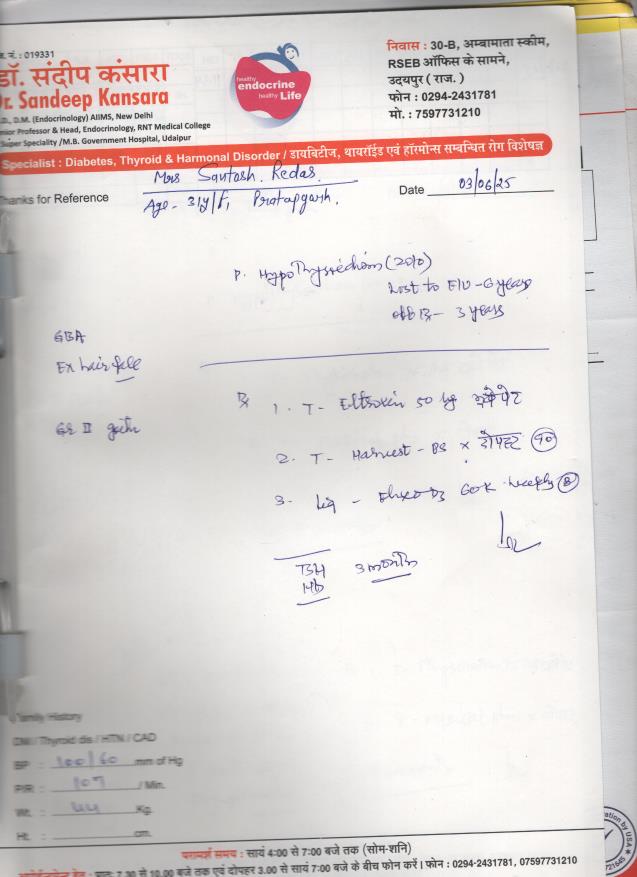 नं. : 019331
डॉ. संदीप कंसारा
Dr. Sandeep Kansara
D., D.M. (Endocrinology) AIIMS, New Delhi
nior Professor & Head, Endocrinology, RNT Medical College
Super Speciality /M.B. Government Hospital, Udaipur
healthy
endocrine
healthy Life
निवास : 30-B, अम्बामाता स्कीम,
RSEB ऑफिस के सामने,
उदयपुर ( राज. )
फोन : 0294-2431781
मो. : 7597731210
Specialist : Diabetes, Thyroid & Harmonal Disorder / डायबिटीज, थायरॉईड एवं हॉरमोन्स सम्बन्धित रोग विशेषज्ञ
Thanks for Reference
Mrs Santosh. Kedas.
Date 03/06/25
Age - 31y/F, Pratapgarh.
P. Hypothyroidism (2010)
Lost to F/U - 6 years
off Rx - 3 years
GBA
Ex hair fall
Rx 1. T - Eltroxin 50
Gr II
2. T - Harvest - BS x दोपहर 90
3. 60K weekly 8
TSH 3 month
Hb
Family History
DM / Thyroid dis / HTN / CAD
BP : 100/60 mm of Hg
P/R : 107 / Min.
Wt. : 44 Kg.
Ht. : cm.
परामर्श समय : सायं 4:00 से 7:00 बजे तक (सोम-शनि)
प्रातः 7.30 से 10.00 बजे तक एवं दोपहर 3.00 से सायं 7:00 बजे के बीच फोन करें। फोन : 0294-2431781, 07597731210